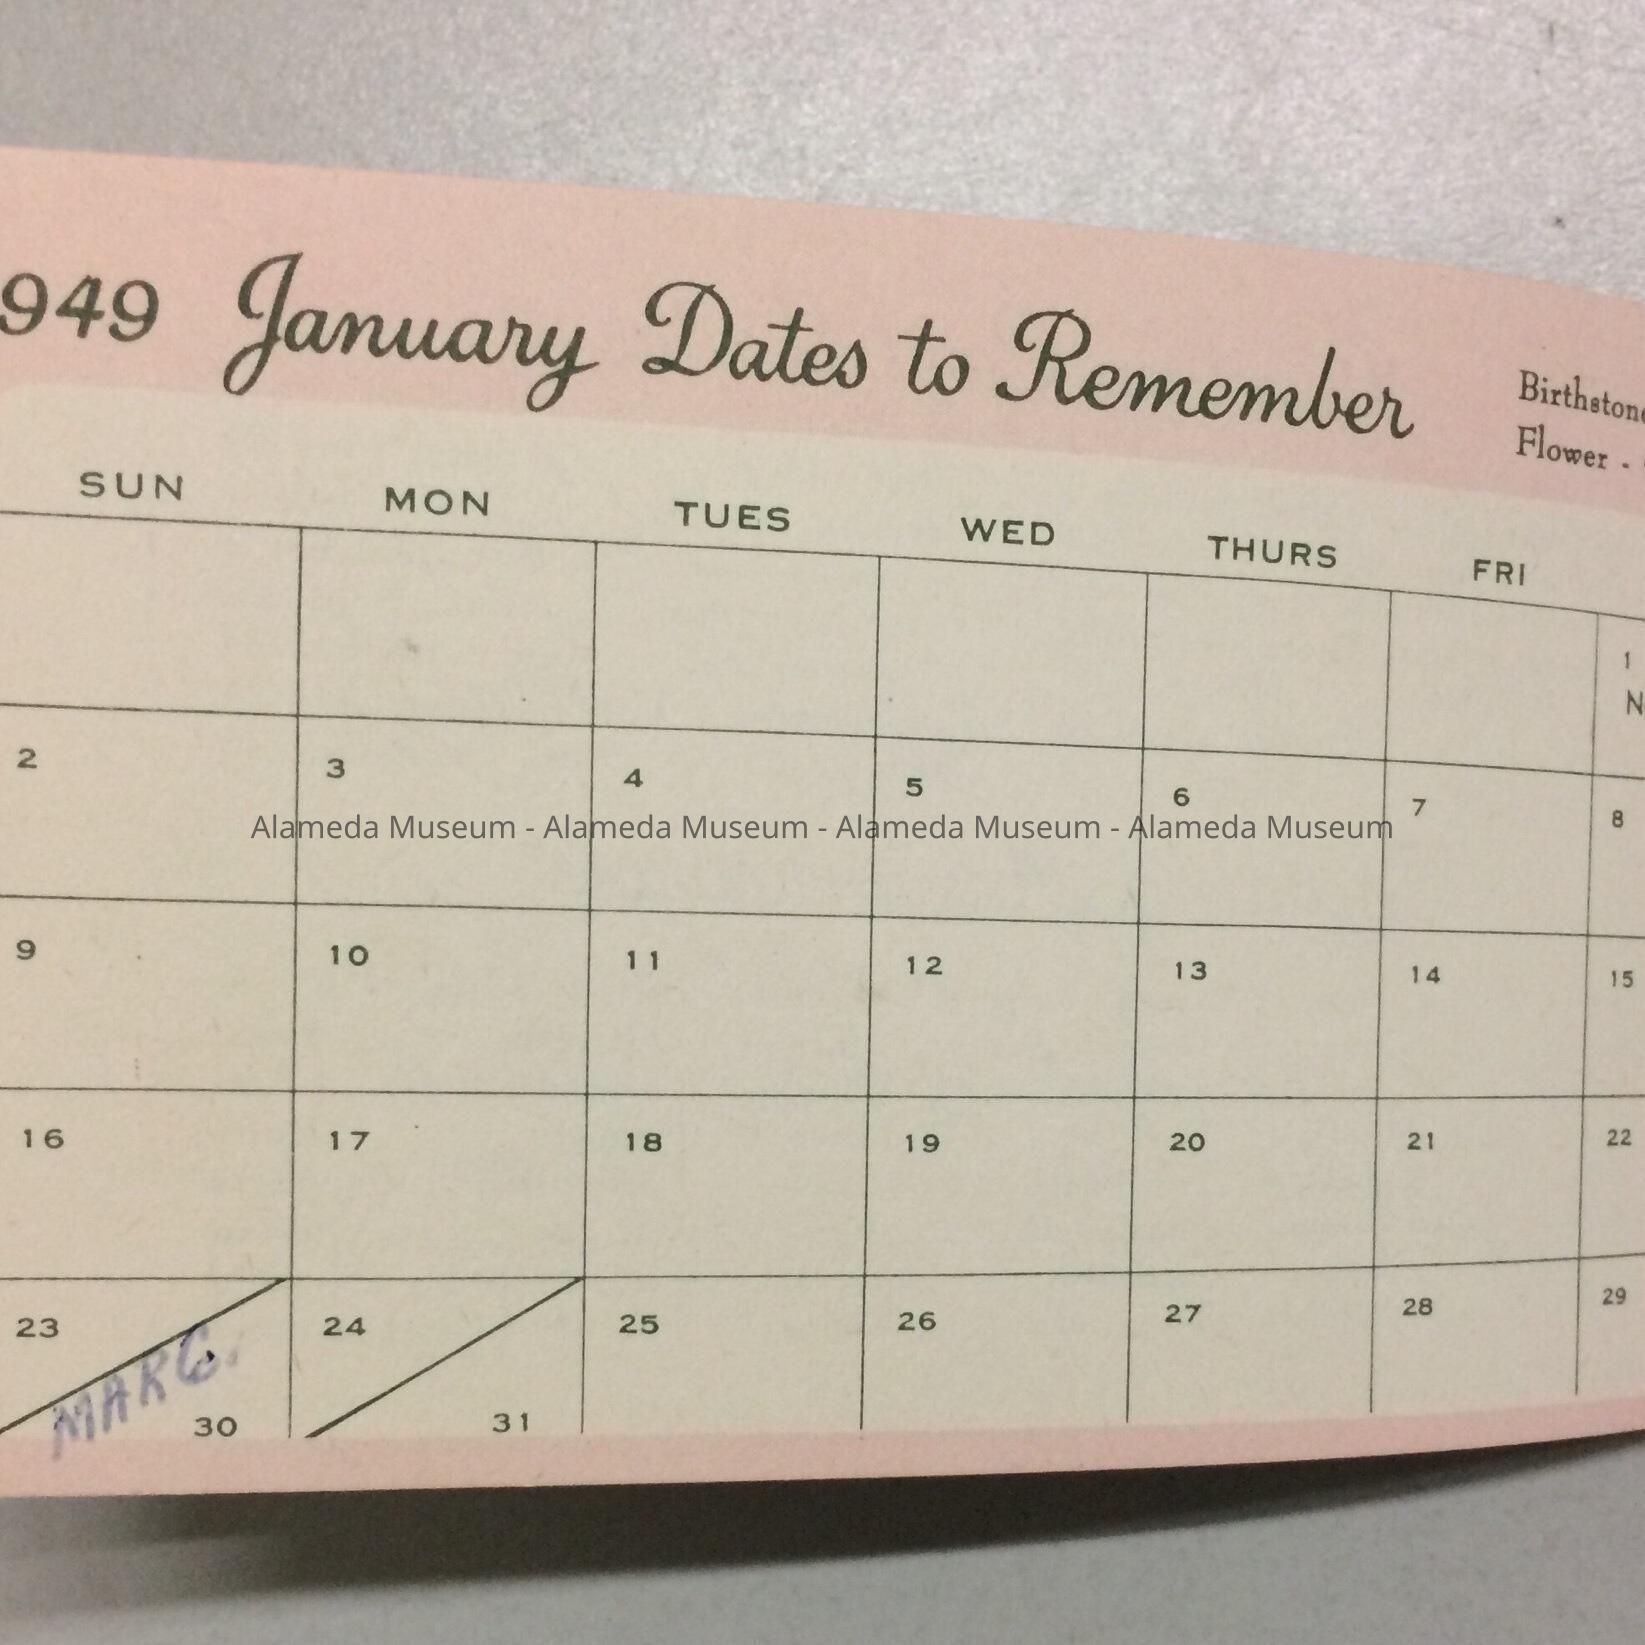 949 January Dates to Remember
Birthstone
Flower -
SUN MON TUES WED THURS FRI
1
N
2 3 4 5 6 7 8
Alameda Museum - Alameda Museum - Alameda Museum - Alameda Museum
9 10 11 12 13 14 15
16 17 18 19 20 21 22
23 24 25 26 27 28 29
MARG.
30 31